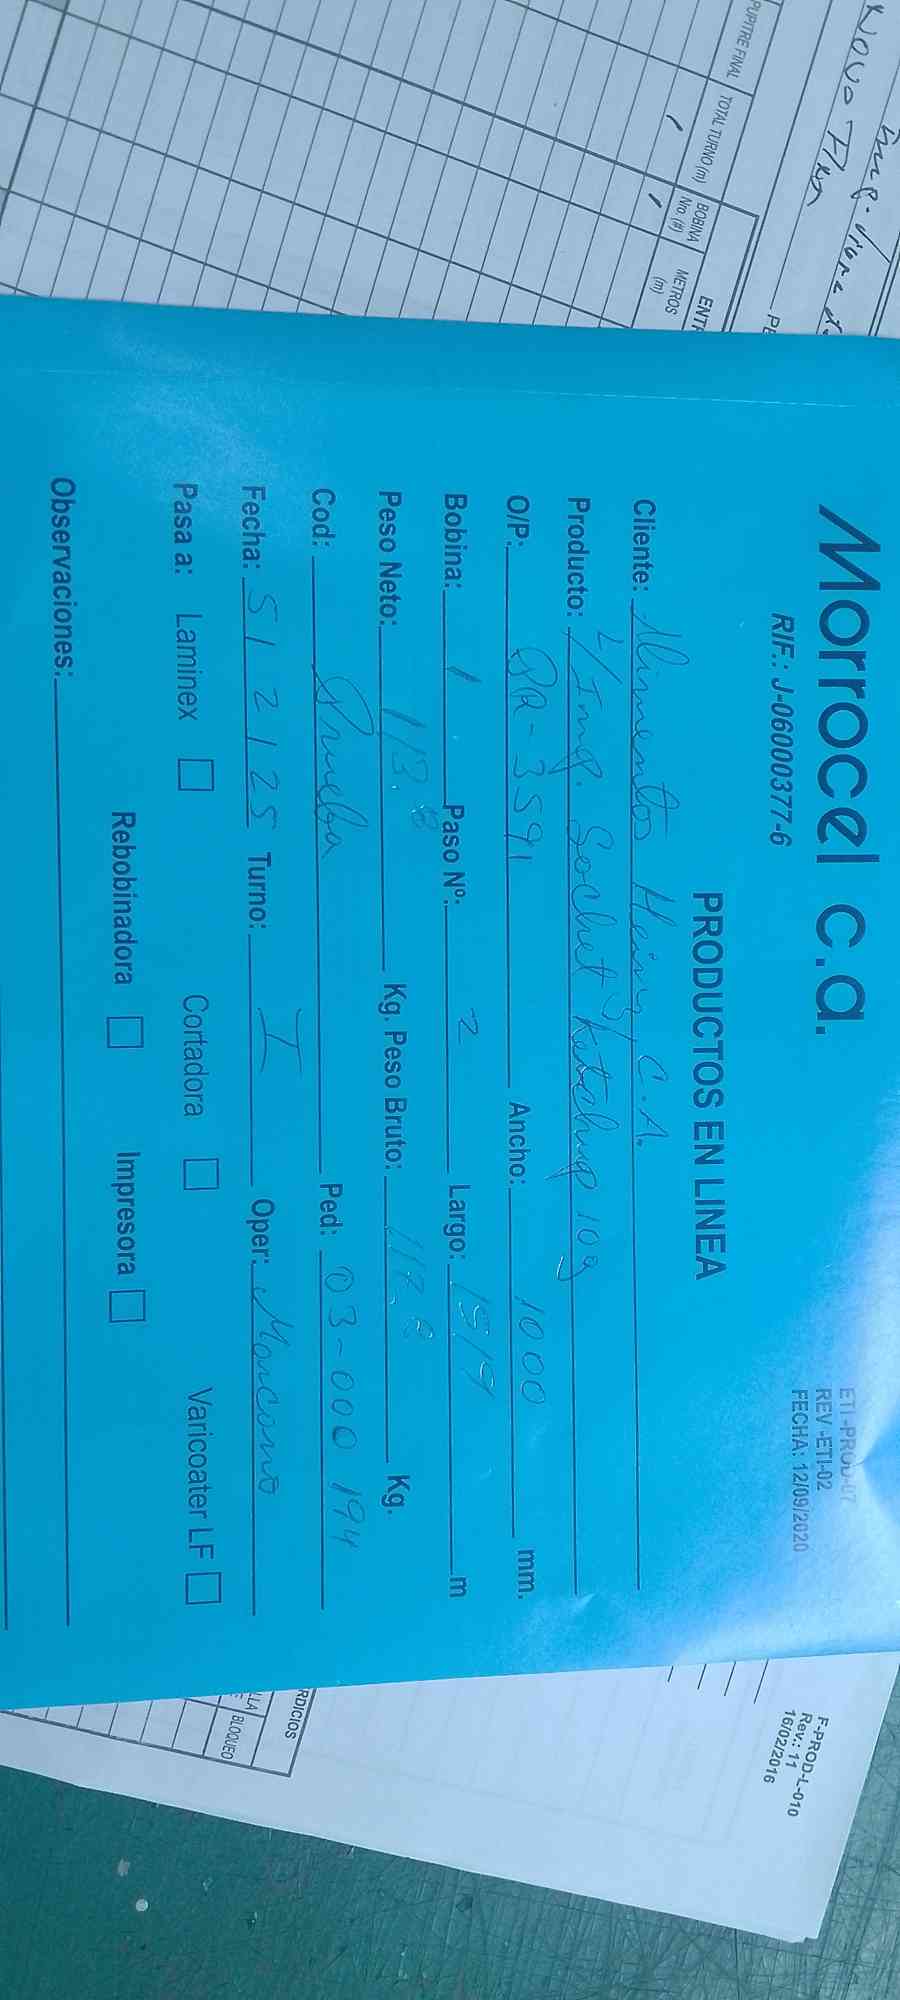 Morrocel c.a.
RIF.: J-06000377-6
ETI-PROD-07
REV-ETI-02
FECHA: 12/09/2020
PRODUCTOS EN LINEA
Cliente: Alimentos Heinz, C.A.
Producto: L/Imp. Sachet Ketchup 10g
O/P: PR-3591 Ancho: 1000 mm.
Bobina: 1 Paso Nº: 2 Largo: m
Peso Neto: 113.8 Kg. Peso Bruto: Kg.
Cod: Prueba Ped: 03-000194
Fecha: 5/2/25 Turno: I Oper: Marcano
Pasa a: Laminex Cortadora Varicoater LF
Rebobinadora Impresora
Observaciones:
PUPITRE FINAL
TOTAL TURNO (m)
BOBINA
Nro. (#)
METROS
(m)
ENTR
F-PROD-L-010
Rev.: 11
16/02/2016
RDICIOS
LLA
BLOQUEO